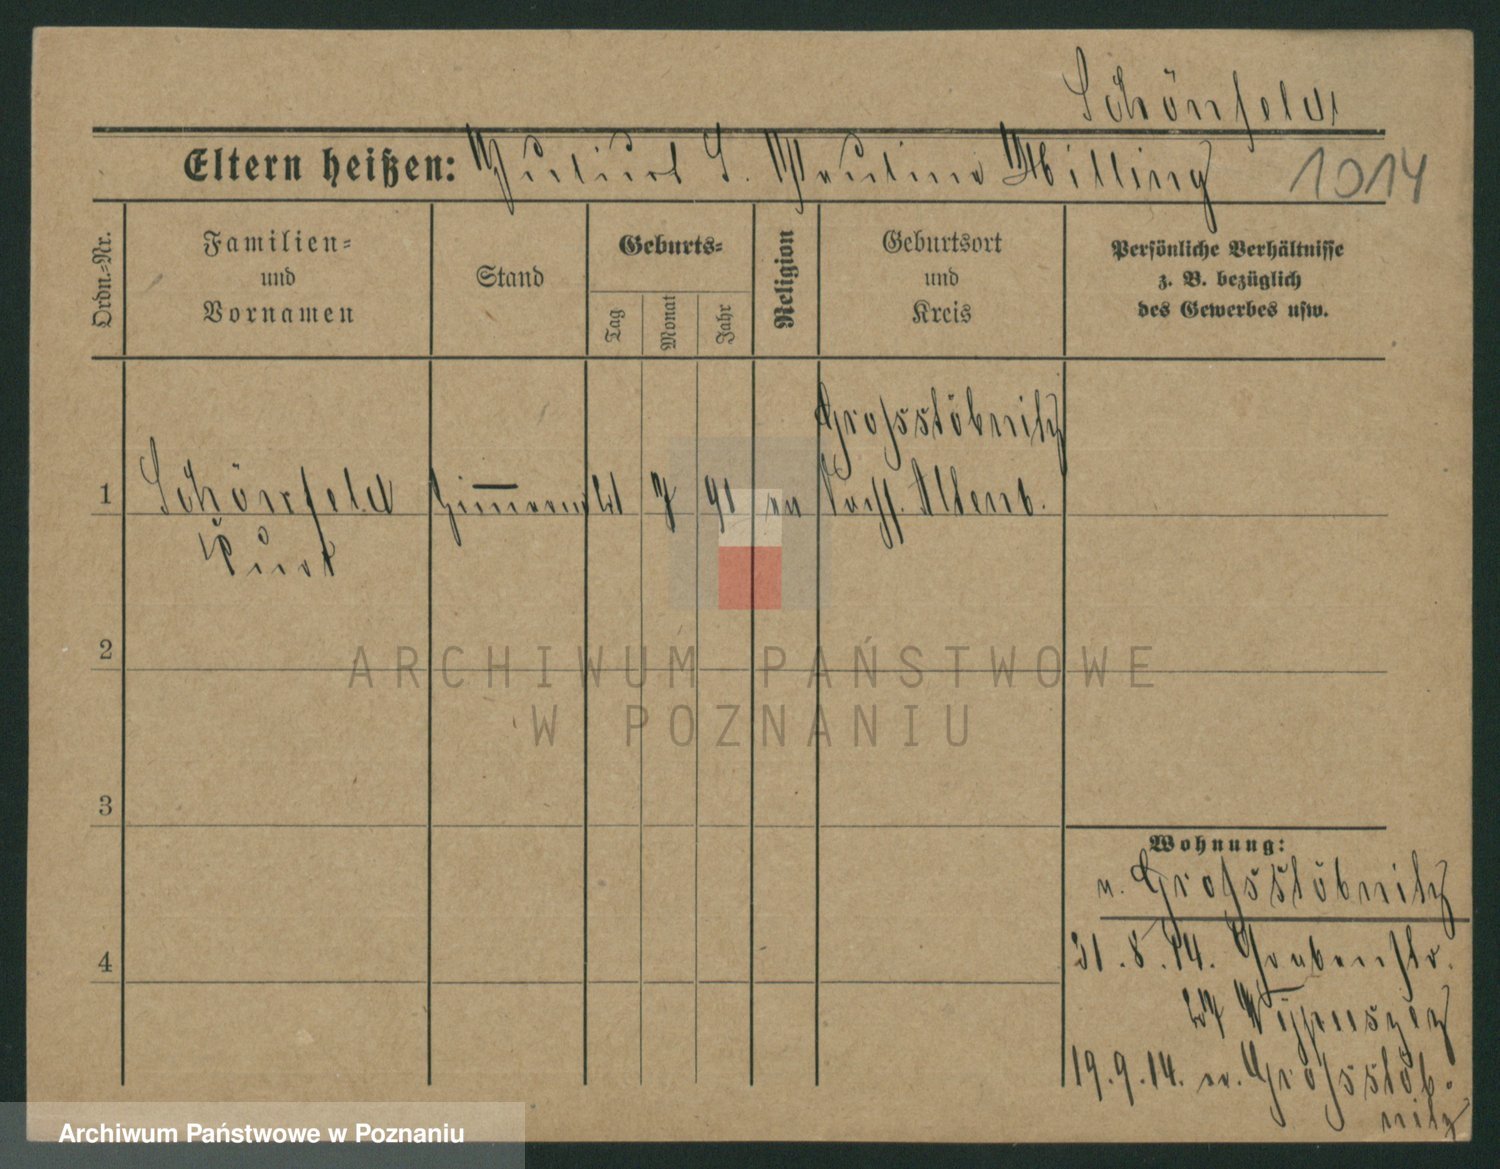 Schönfeld
Eltern heißen: Julius S. Pauline Milling 1014
Ordn.=Nr.
Familien=
und
Vornamen
Stand
Geburts=
Tag
Monat
Jahr
Religion
Geburtsort
und
Kreis
Persönliche Verhältnisse
z. B. bezüglich
des Gewerbes usw.
Grossstöbnitz
1 Schönfeld 7 91 ev Sachs. Altenb.
Kurt
2
3
4
Wohnung:
n. Grossstöbnitz
31.8.14. Grabenstr.
19.9.14. n. Grossstöb-
nitz
ARCHIWUM PAŃSTWOWE
W POZNANIU
Archiwum Państwowe w Poznaniu